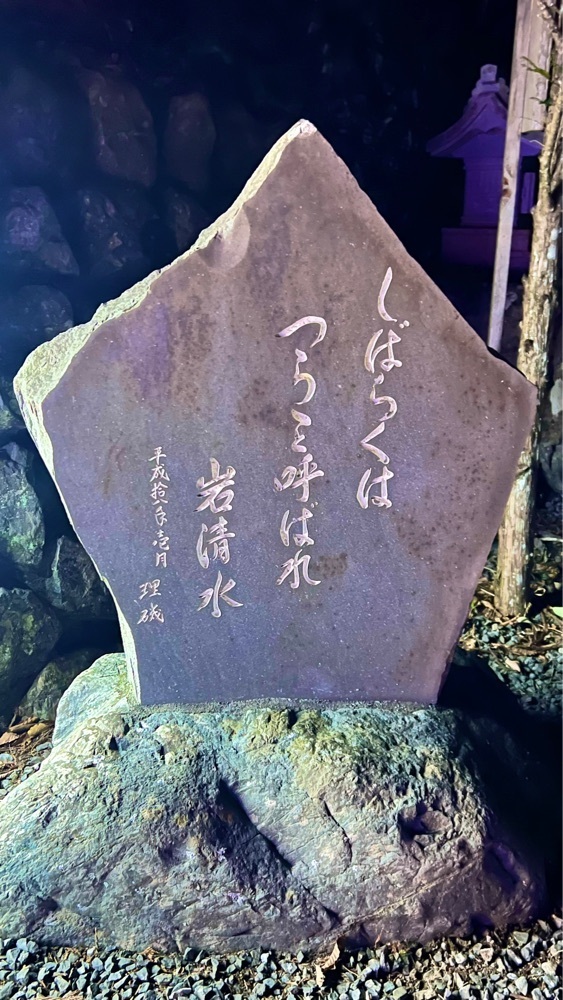 しばらくは
つらゝと呼ばれ
岩清水
平成拾八年壱月 理磯